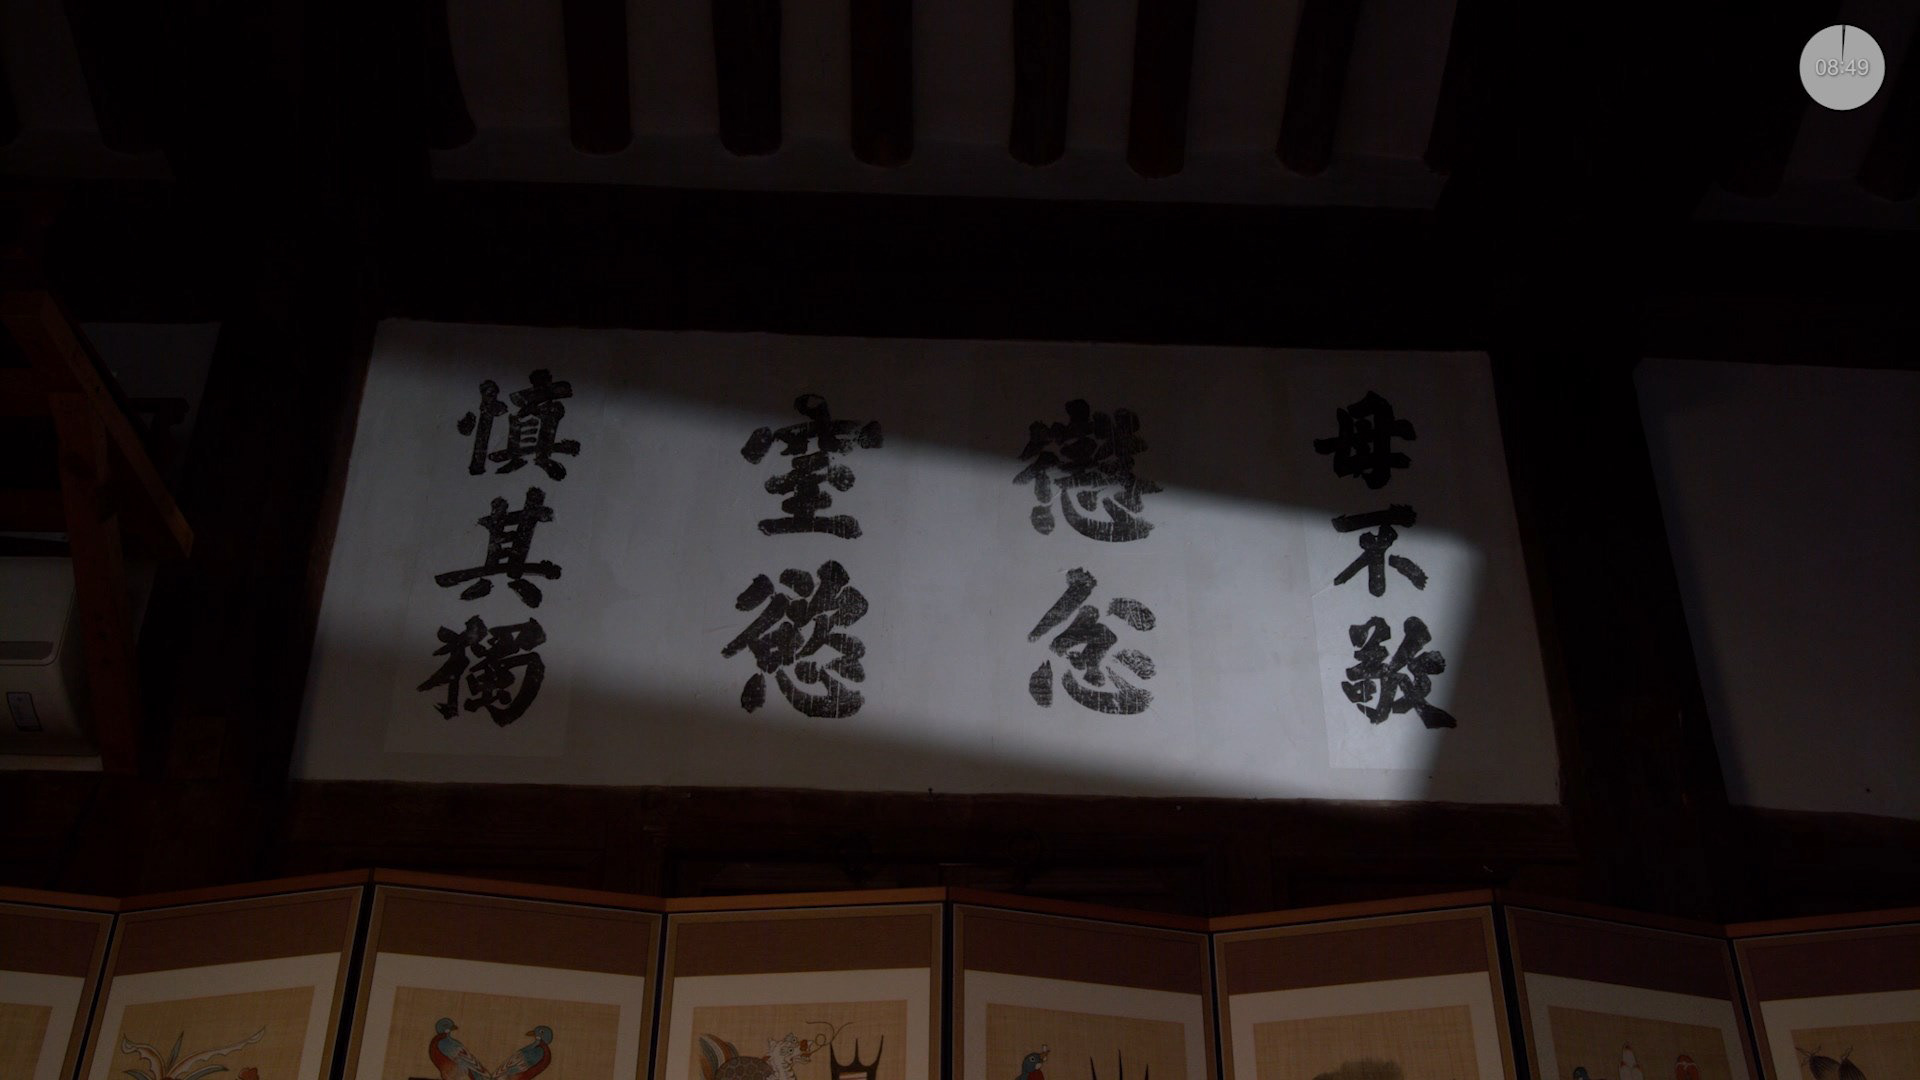 毋不敬
懲忿
窒慾
慎其獨
08:49